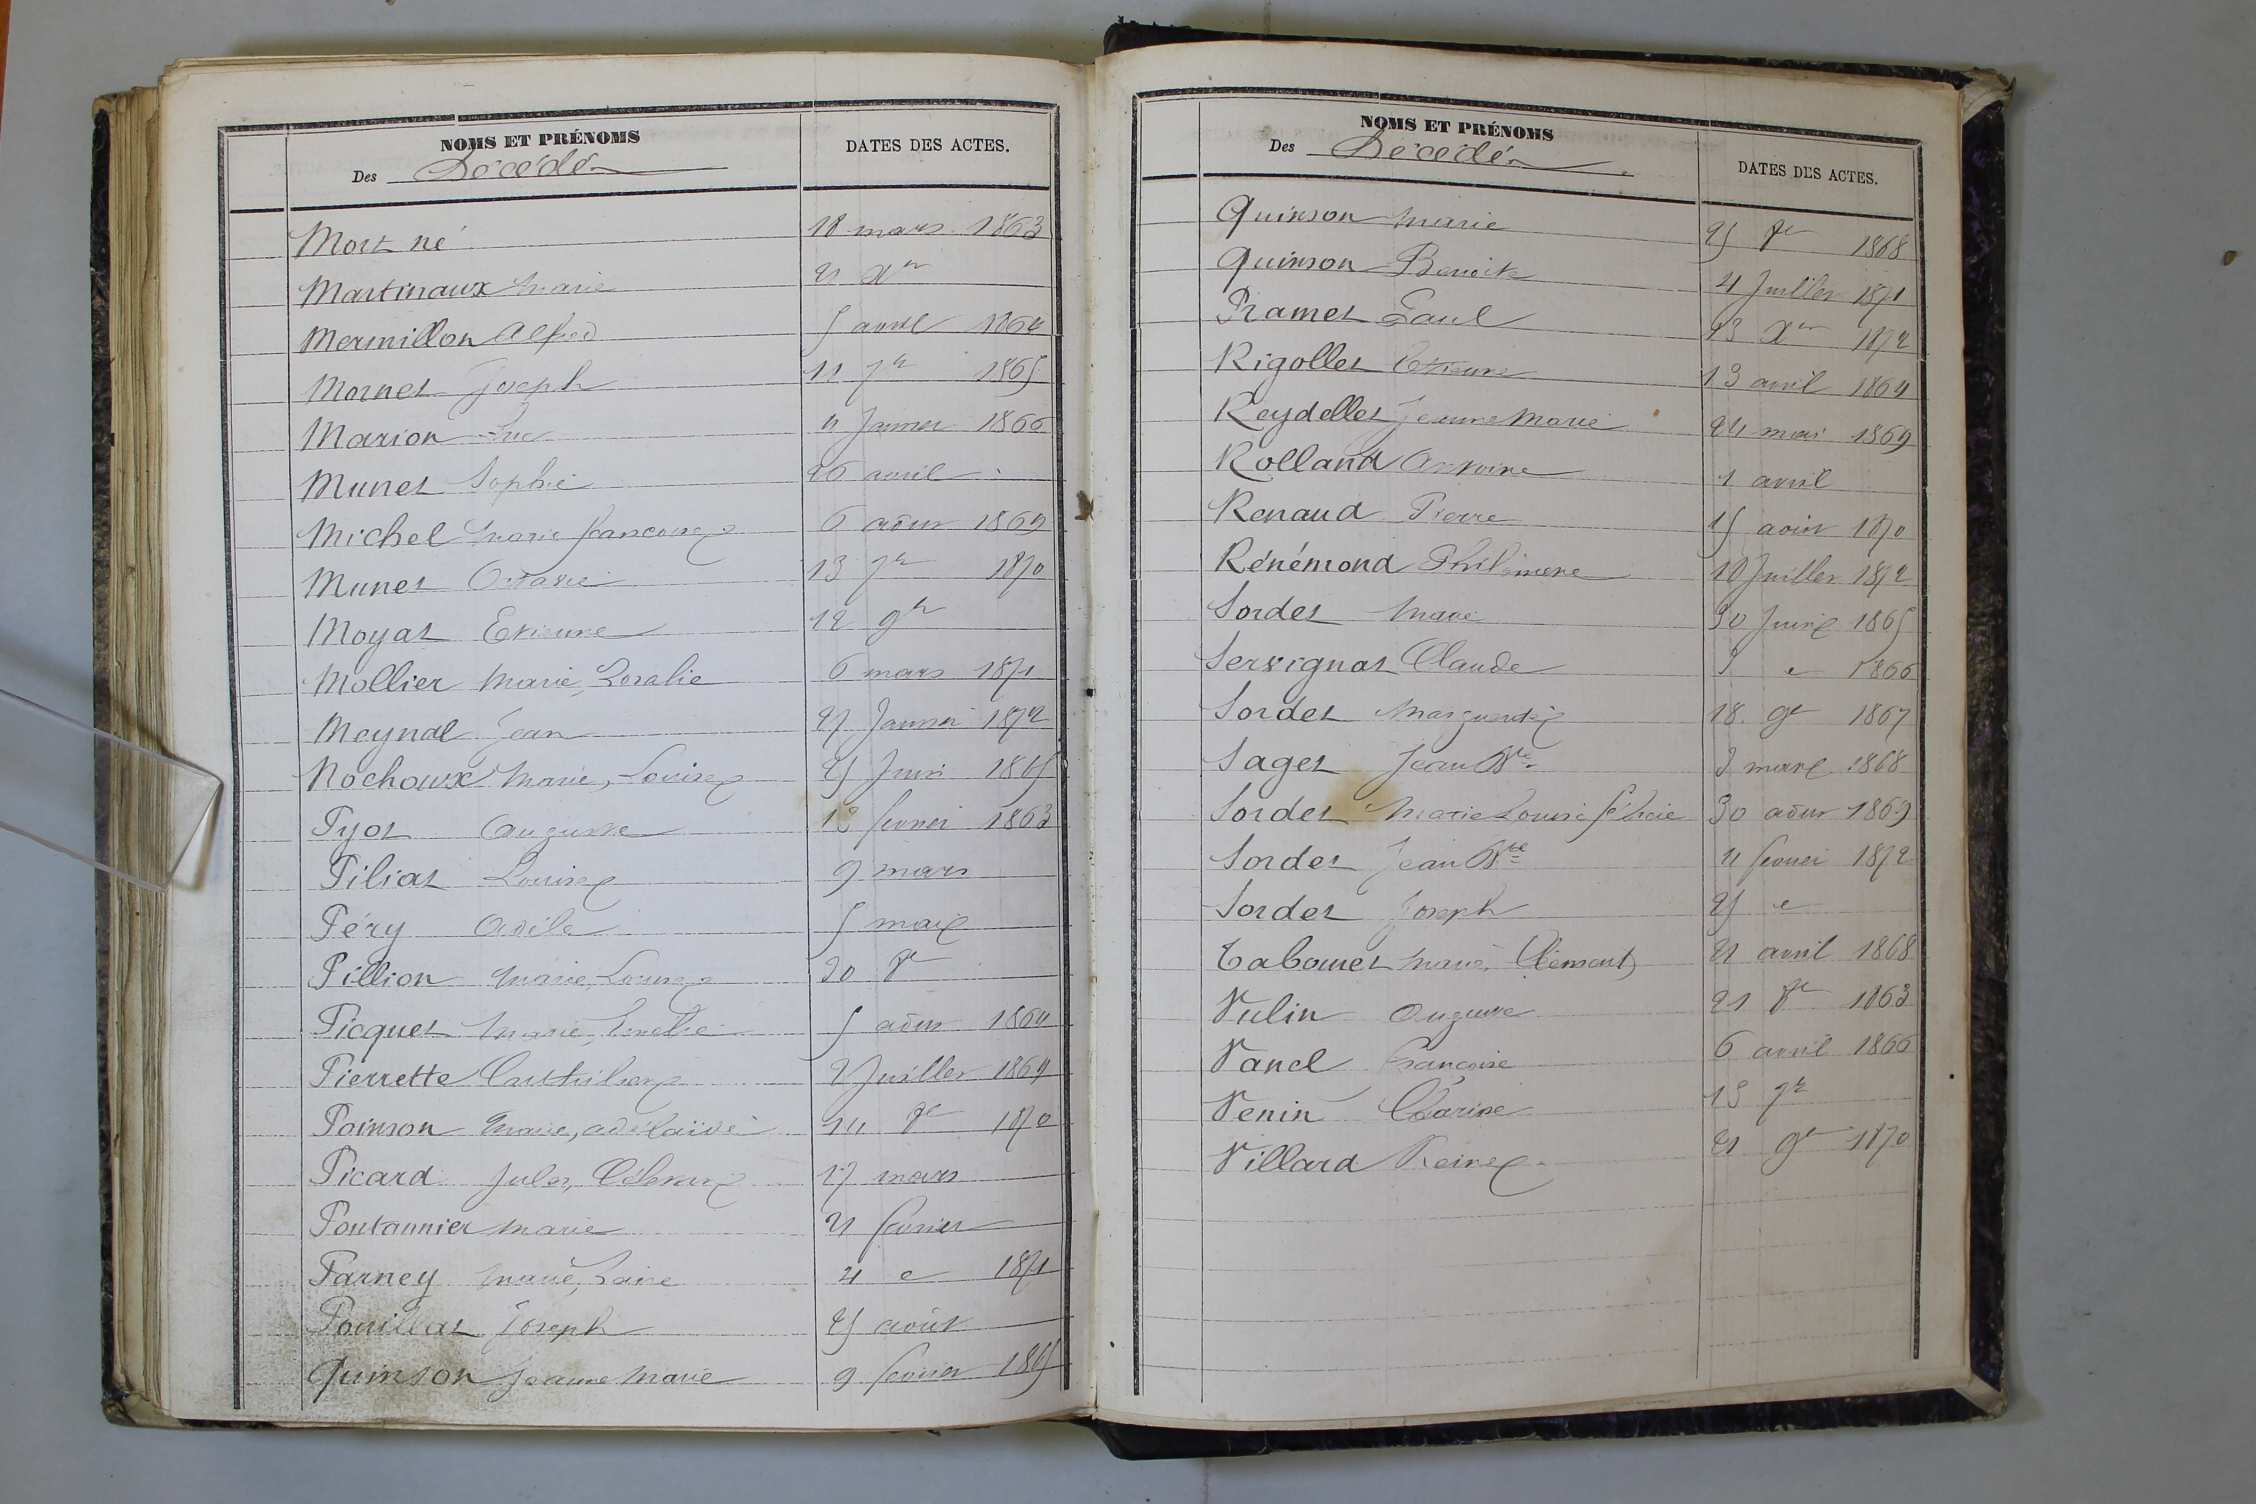 NOMS ET PRÉNOMS
Des Décédés
DATES DES ACTES.
Mort né 18 mars 1863
Martinaux Marie 21 Xbre
Mermillon Alfred 5 avril 1864
Mornet Joseph 11 7bre 1865
Marion Luc 4 Janvier 1866
Munet Sophie 26 avril
Michel Marie françoise 6 août 1869
Munet Octavie 13 7bre 1870
Moyat Etienne 12 9bre
Mollier Marie, Rosalie 6 mars 1871
Meynal Jean 27 Janvier 1872
Nochoux Marie, Louise 25 Juin 1865
Pyot Auguste 12 fevrier 1863
Piliat Louise 9 mars
Péry Adèle 5 mai
Pillion Marie, Louise 20 8bre
Picquet Marie, 5 août 1864
Pierrette Catherine 2 Juillet 1869
Poinson Marie, adelaïde 14 8bre 1870
Picard Jules, 17 mars
Pontannier Marie 21 fevrier
Parney Marie, 4 e 1871
Pouillat Joseph 25 août
Quinson Jeanne Marie 9 fevrier 1865
NOMS ET PRÉNOMS
Des Décédés
DATES DES ACTES.
Quinson Marie 25 8bre 1868
Quinson Benoite 4 Juillet 1871
Ramet Paul 23 Xbre 1872
Rigollet Etienne 13 avril 1864
Reydellet Jeanne Marie 24 mai 1869
Rolland Antoine 1 avril
Renaud Pierre 15 août 1870
Rénémond Philomène 10 Juillet 1872
Sordet Marie 30 Juin 1865
Servignat Claude 3 e 1866
Sordet Marguerite 18 9bre 1867
Saget Jean Bte 3 mars 1868
Sordet Marie Louise félicie 30 août 1869
Sordet Jean Bte 21 fevrier 1872
Sordet Joseph 25 e
Tabouret Marie, Clémont 21 avril 1868
Vulin Auguste 21 8bre 1863
Vanel françoise 6 avril 1866
Venin Clarisse 13 7bre
Villard Reine 21 9bre 1870